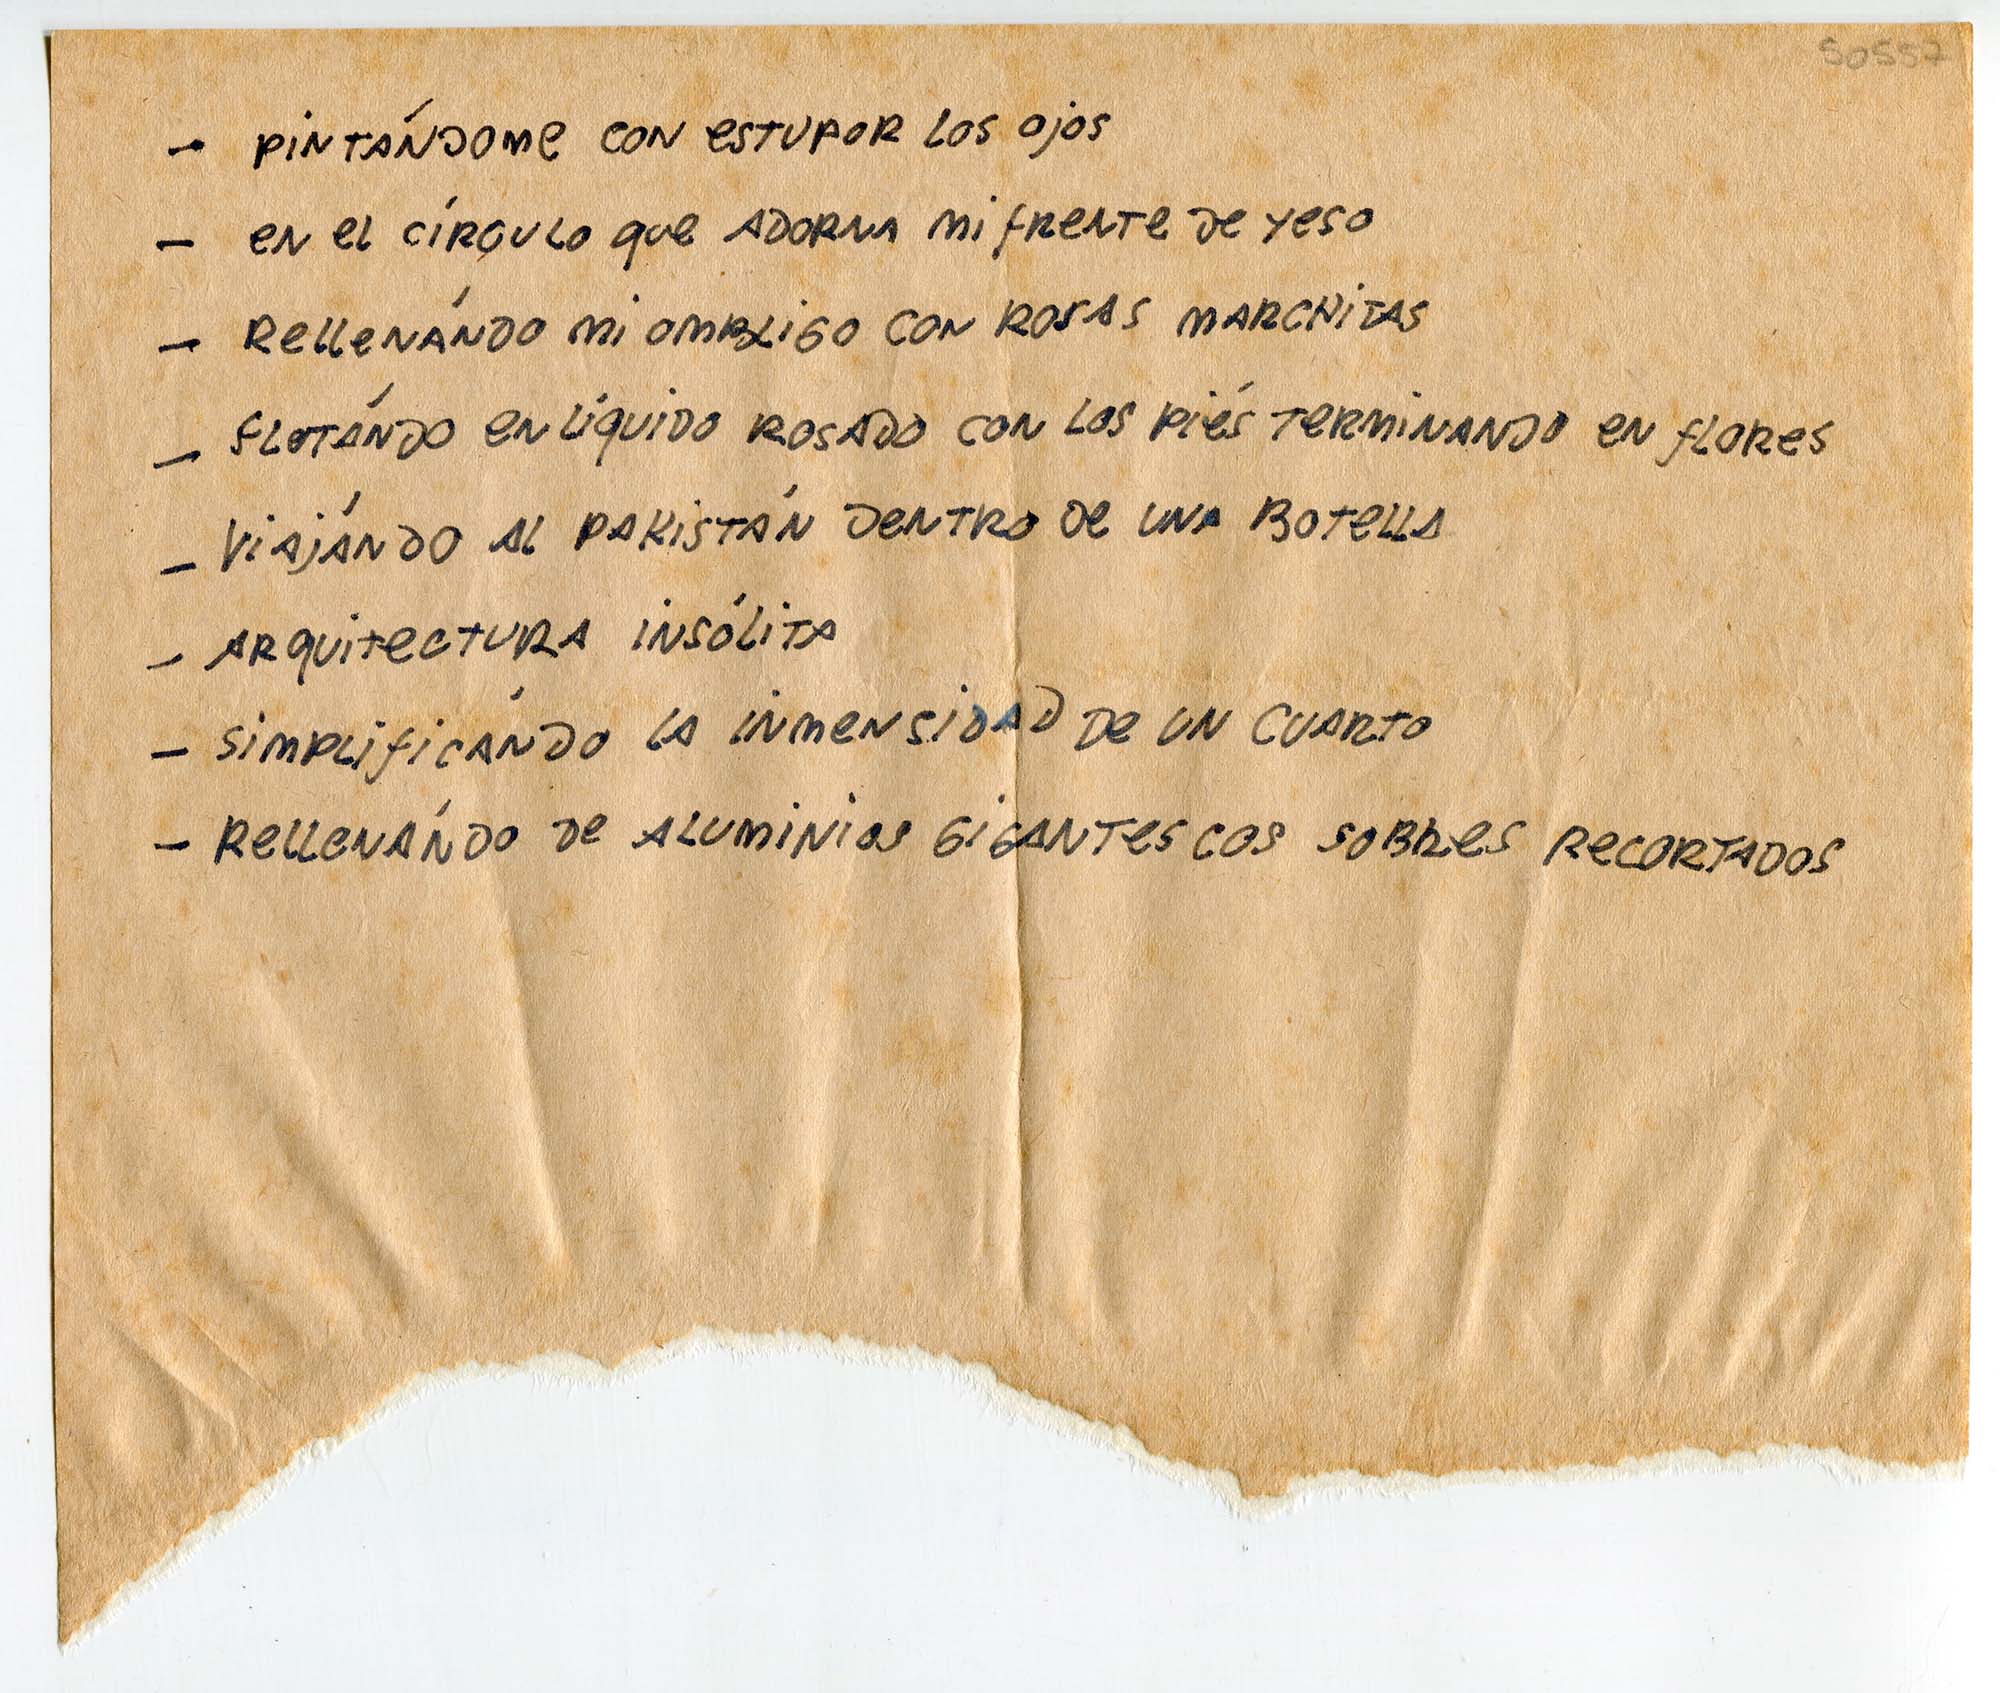 50557
- PINTÁNDOME CON ESTUPOR LOS OJOS
- EN EL CÍRCULO QUE ADORNA MI FRENTE DE YESO
- RELLENÁNDO MI OMBLIGO CON ROSAS MARCHITAS
- FLOTÁNDO EN LÍQUIDO ROSADO CON LOS PIÉS TERMINANDO EN FLORES
- VIAJÁNDO AL PAKISTÁN DENTRO DE UNA BOTELLA
- ARQUITECTURA INSÓLITA
- SIMPLIFICÁNDO LA INMENSIDAD DE UN CUARTO
- RELLENÁNDO DE ALUMINIOS GIGANTESCOS SOBRES RECORTADOS